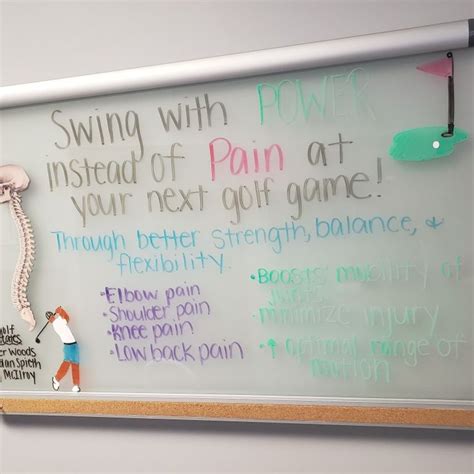 Swing with POWER
instead of Pain at
your next golf game!
Through better strength, balance, +
flexibility.
• Elbow pain
• Shoulder pain
• Knee pain
• Low back pain
• Boosts mobility of
joints
• minimize injury
• ↑ optimal range of
motion
Woods
Spieth
McIlroy